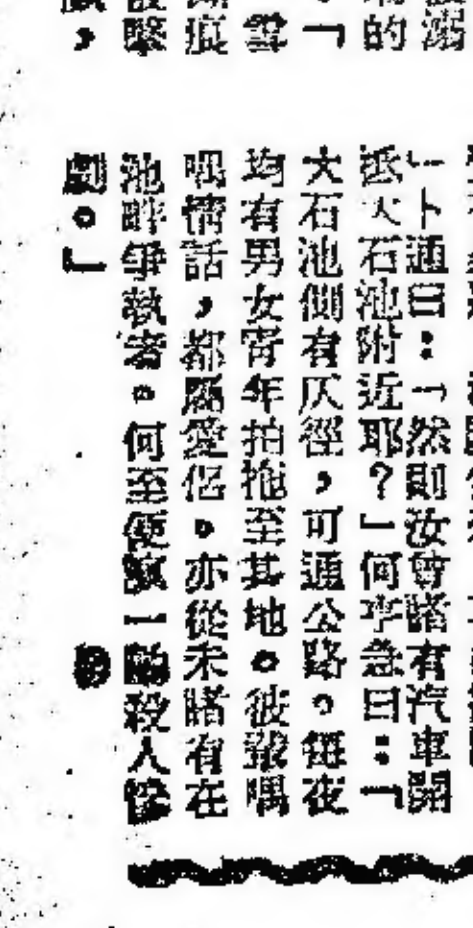 卜通曰：「然則汝曾睹有汽車開
抵大石池附近耶？」何李急曰：「
大石池側有仄徑，可通公路。每夜
均有男女青年拍拖至其地。彼輩喁
喁情話，都屬愛侶。亦從未睹有在
池畔爭執者。何至便演一齣殺人慘
劇。」